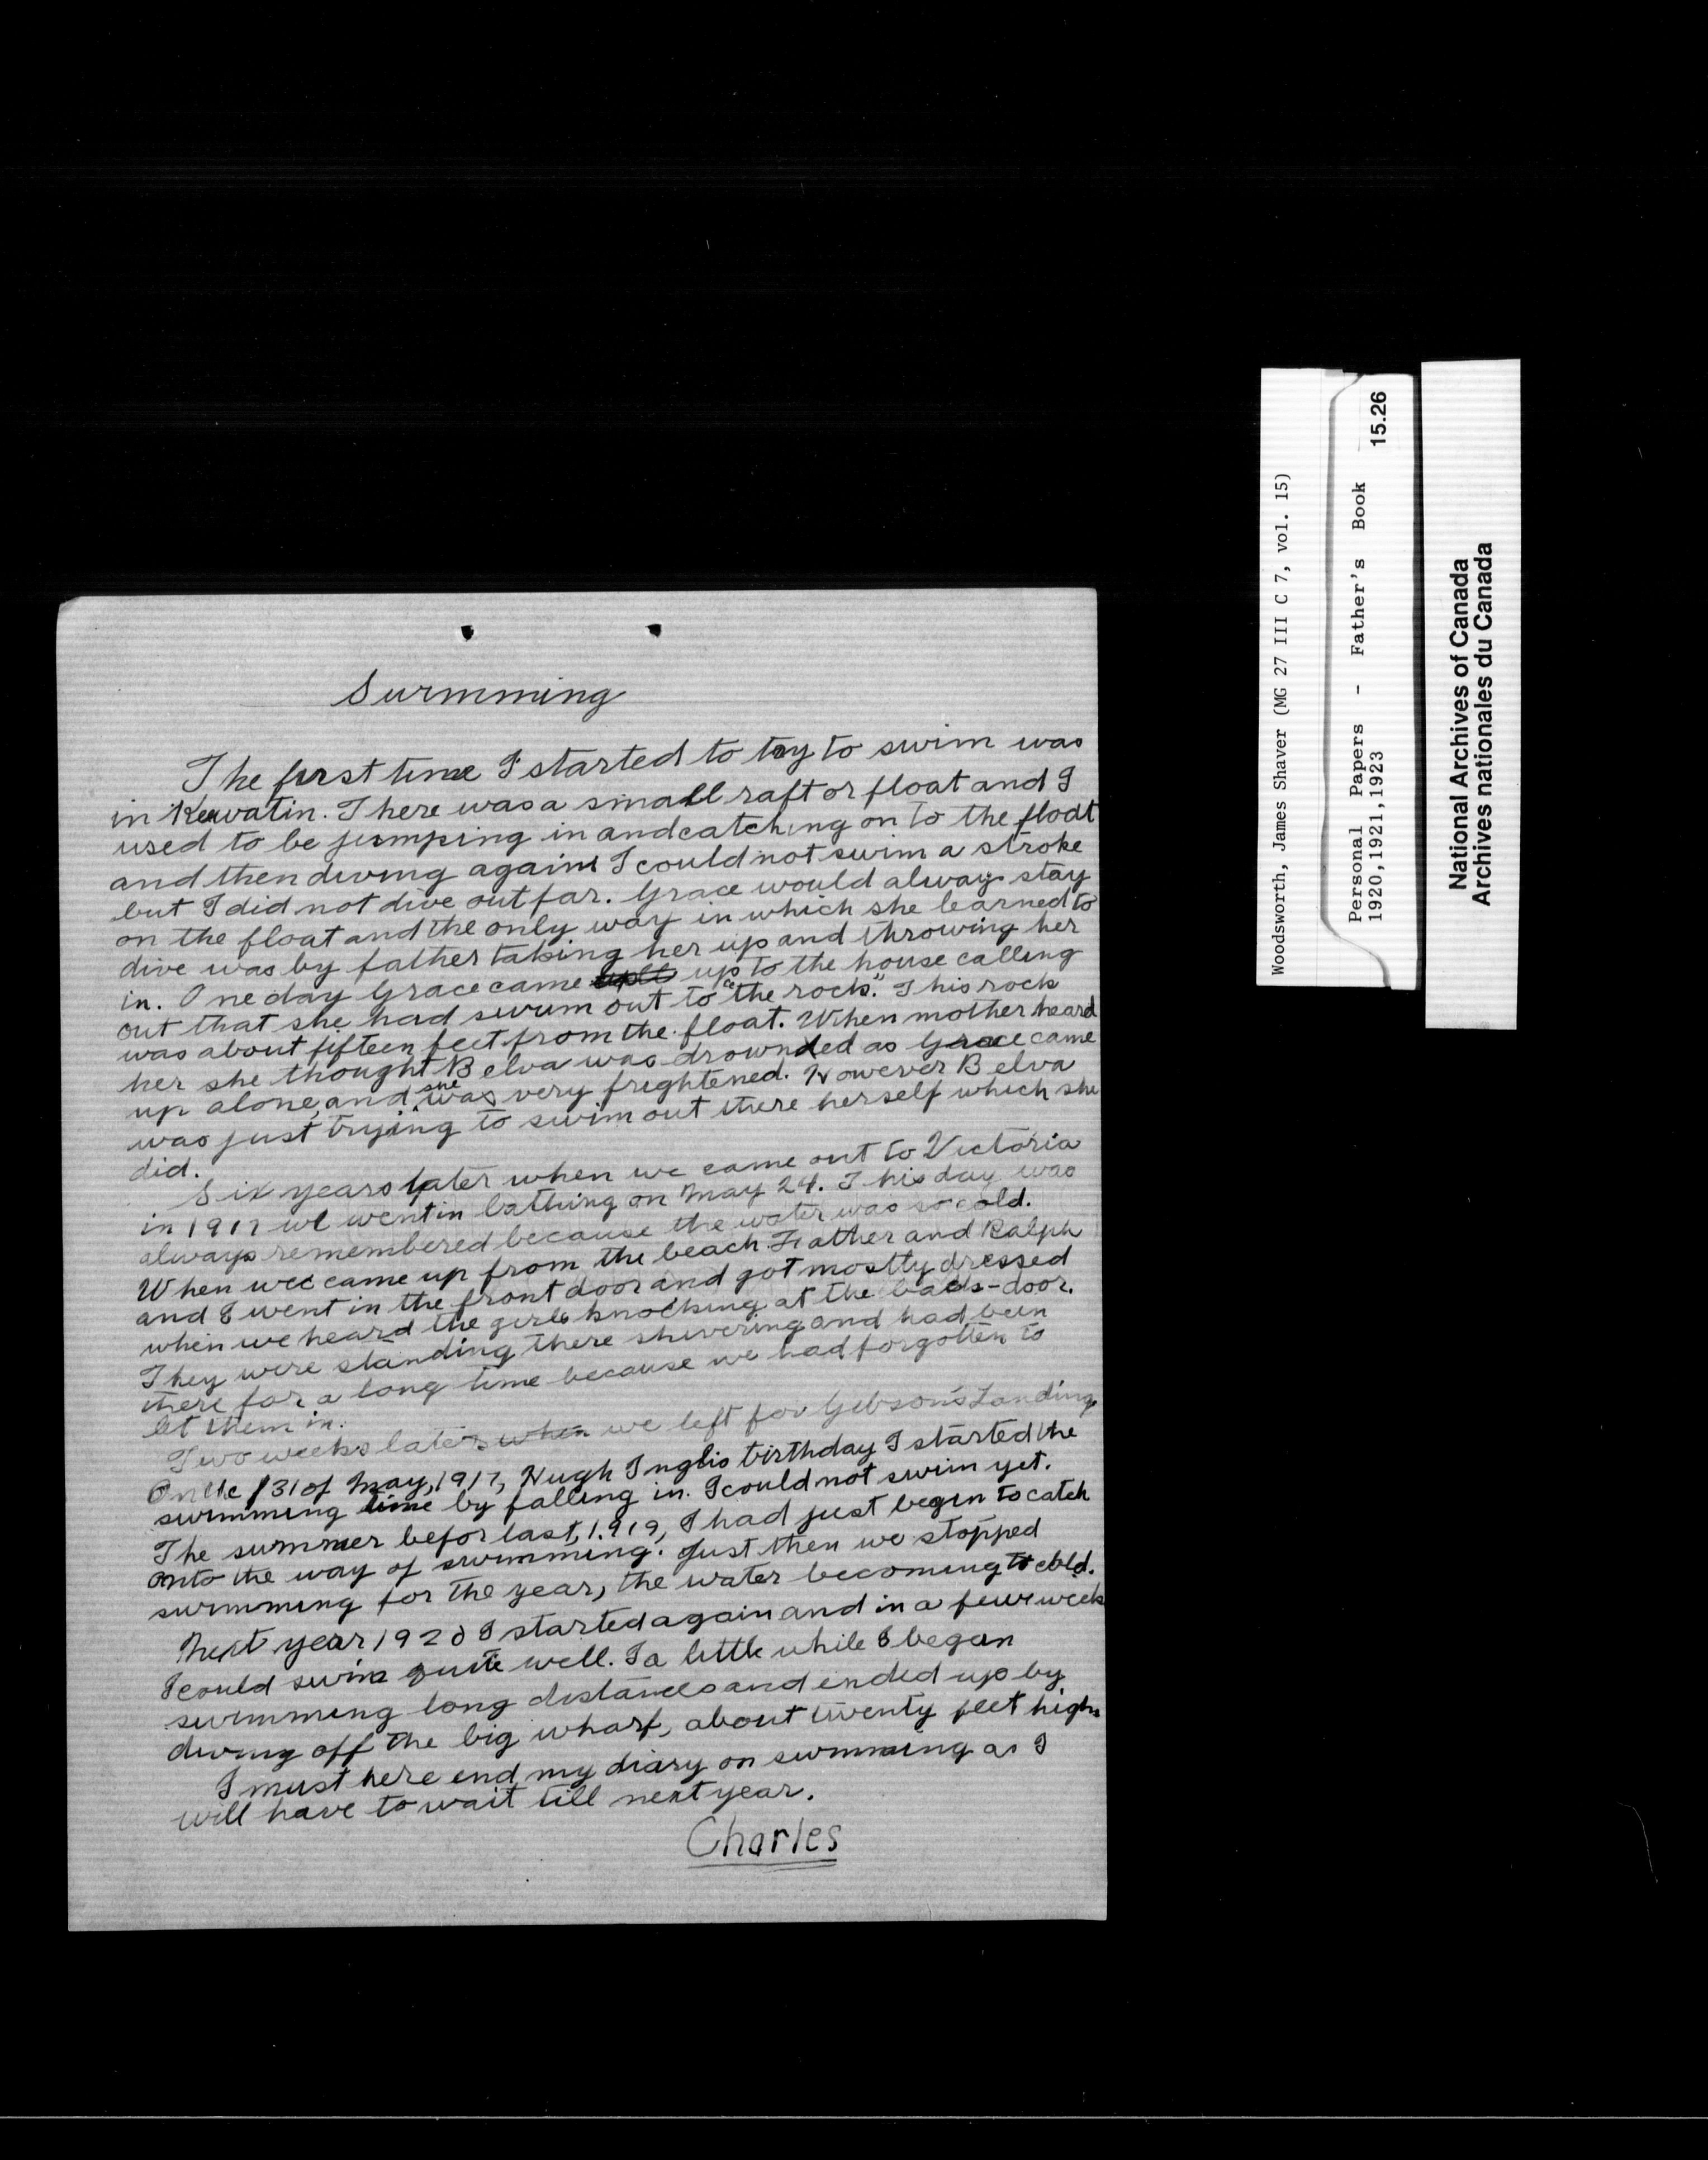 Swimming
The first time I started to try to swim was
in Kewatin. There was a small raft or float and I
used to be jumping in and catching on to the float
and then diving again I could not swim a stroke
but I did not dive out far. Grace would always stay
on the float and the only way in which she learned to
dive was by father taking her up and throwing her
in. One day Grace came up to the house calling
out that she had swum out to "the rock". This rock
was about fifteen feet from the float. When mother heard
her she thought Belva was drownded as Grace came
up alone, and she was very frightened. However Belva
was just trying to swim out there herself which she
did.
Six years later when we came out to Victoria
in 1917 we went in bathing on May 24. This day was
always remembered because the water was so cold.
When we came up from the beach Father and Ralph
and I went in the front door and got mostly dressed
when we heard the girls knocking at the back-door.
They were standing there shivering and had been
there for a long time because we had forgotten to
let them in.
Two weeks later when we left for Gibson's Landing
On the 31 of May, 1917, Hugh Inglis birthday I started the
swimming time by falling in. I could not swim yet.
The summer befor last, 1919, I had just begin to catch
onto the way of swimming. Just then we stopped
swimming for the year, the water becoming to cold.
Next year 1920 I started again and in a few weeks
I could swim quite well. I a little while I began
swimming long distances and ended up by
diving off the big wharf, about twenty feet high.
I must here end my diary on swimming as I
will have to wait till next year.
Charles
Woodsworth, James Shaver (MG 27 III C 7, vol. 15)
Personal Papers - Father's Book 15.26
1920,1921,1923
National Archives of Canada
Archives nationales du Canada